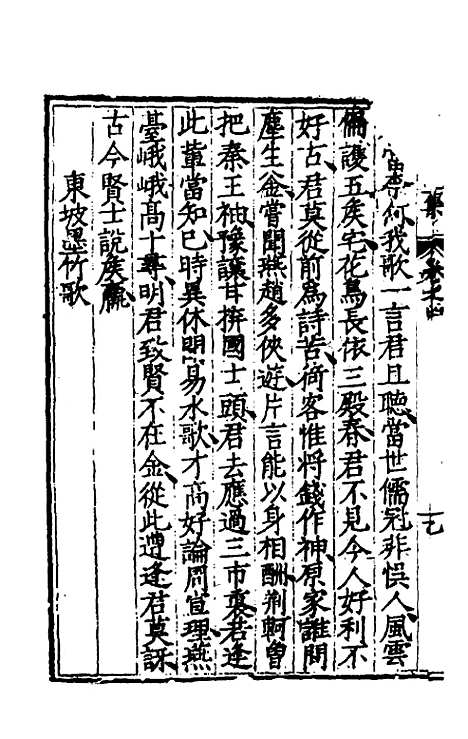 何我歌一言君且聽當世儒冠非悞人風雲
偏護五矦宅花鳥長依三殿春君不見今人好利不
好古君莫從前爲詩苦商客惟將錢作神原家誰問
塵生釜嘗聞燕趙多俠遊片言能以身相酬荆軻曾
把秦王袖豫讓甘拚國士頭君去應過三市裏若逢
此輩當知已時異休明易水歌才高好論周宣理燕
臺峨峨高十尋明君致賢不在金從此遭逢君莫訝
古今賢士說矦嬴
東坡墨竹歌